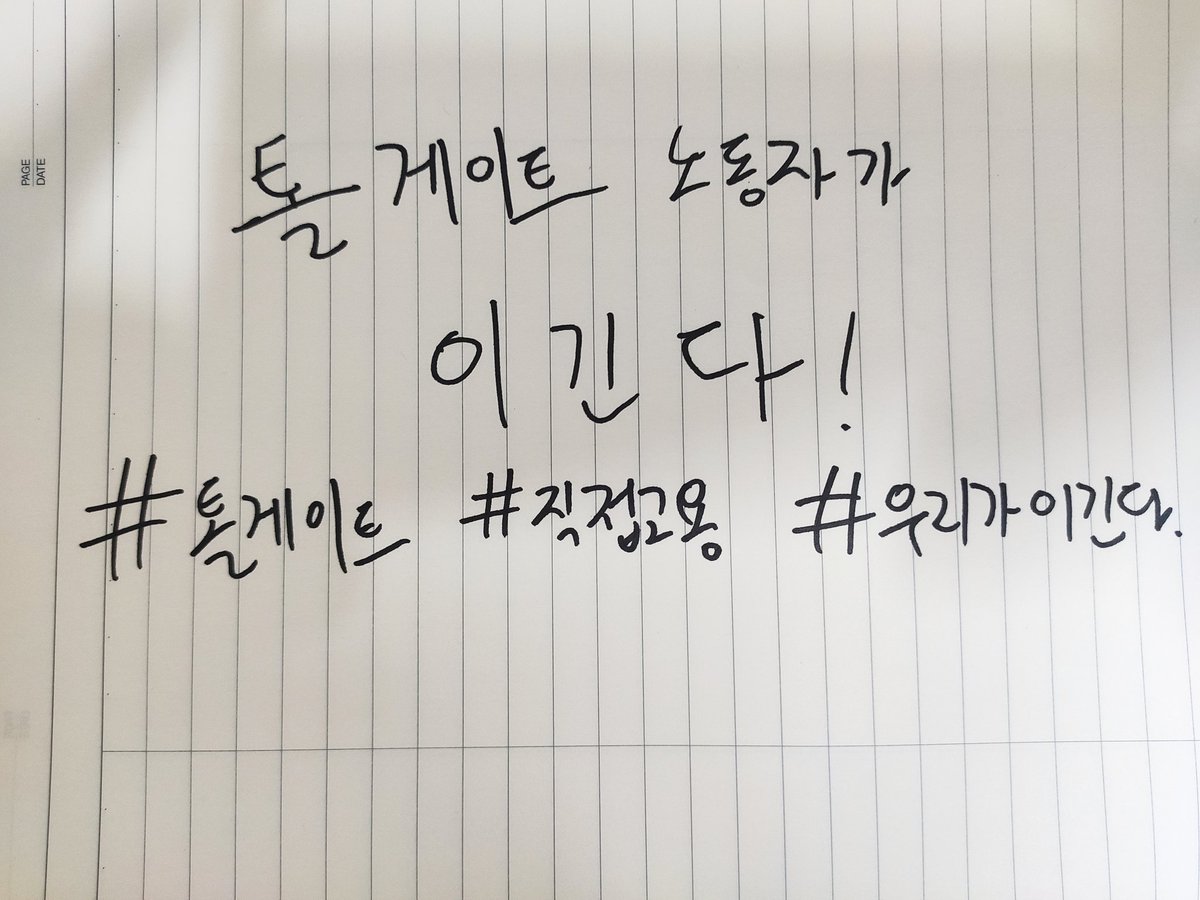 PAGE
DATE
톨게이트 노동자가
이긴다!
#톨게이트 #직접고용 #우리가이긴다.